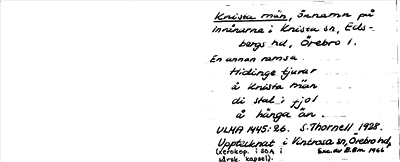 Knista män, öknamn på
invånarna i Knista sn, Eds-
bergs hd, Örebro l.
En annan ramsa
Hidinge tjuvar
å Knista män
di stal i fjol
å hänga än.
ULMA 1445:26. S. Thornell 1928.
Upptecknat i Vintrosa sn, Örebro hd,
(Xerokop. i SOA i Exc. av B.Em 1966
särsk. kapsel).